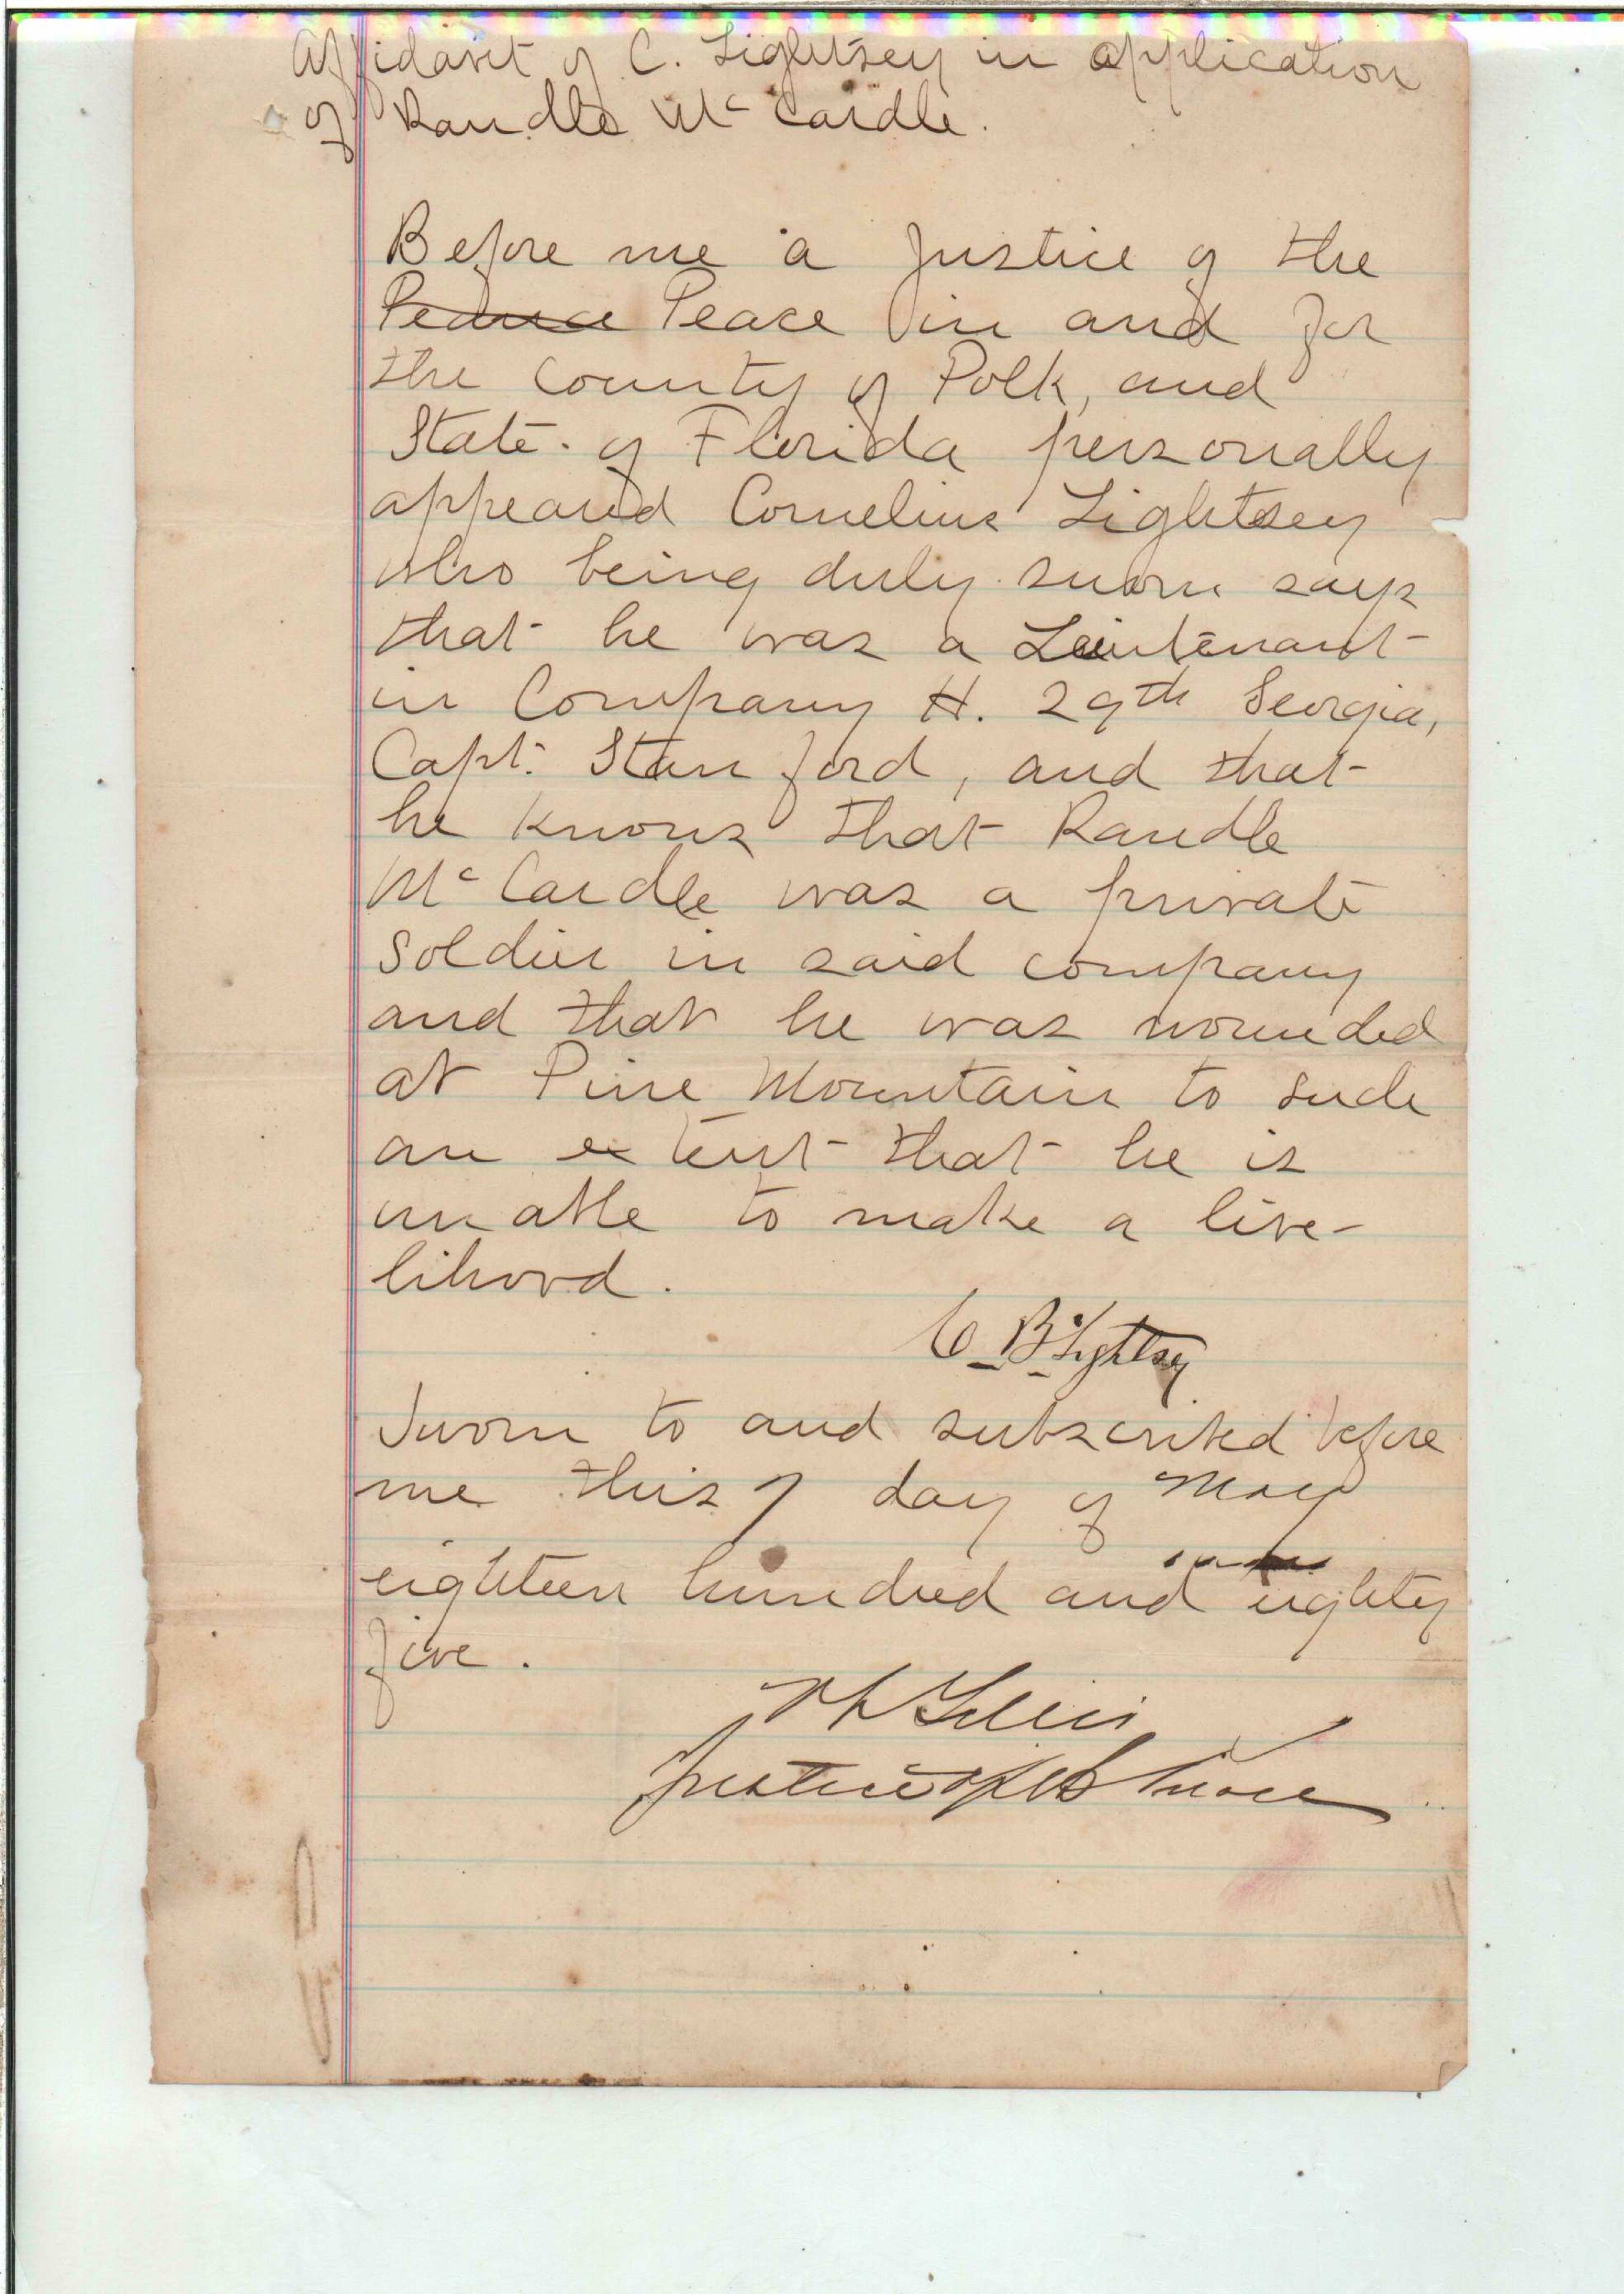 Affidavit of C. Lightsey in application
of Randle McCardle.
Before me a Justice of the
Peace in and for
the County of Polk, and
State. of Florida personally
appeared Cornelius Lightsey
who being duly sworn says
that he was a Leiutenant
in Company H. 29th Georgia,
Capt. Stanford, and that
he knows that Randle
McCardle was a private
soldier in said company
and that he was wounded
at Pine Mountain to such
an extent that he is
unable to make a live-
lihood.
C B Lightsey
Sworn to and subscribed before
me this 7 day of May
eighteen hundred and eighty
five.
Justice of the Peace